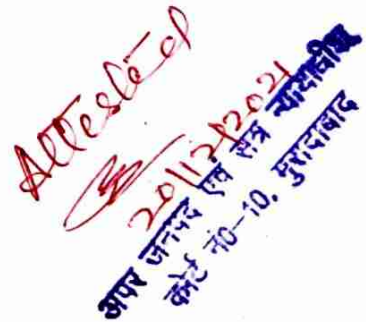 Attested
20/12/2021
अपर जनपद एवं सत्र न्यायाधीश
कोर्ट नं0-10, मुरादाबाद